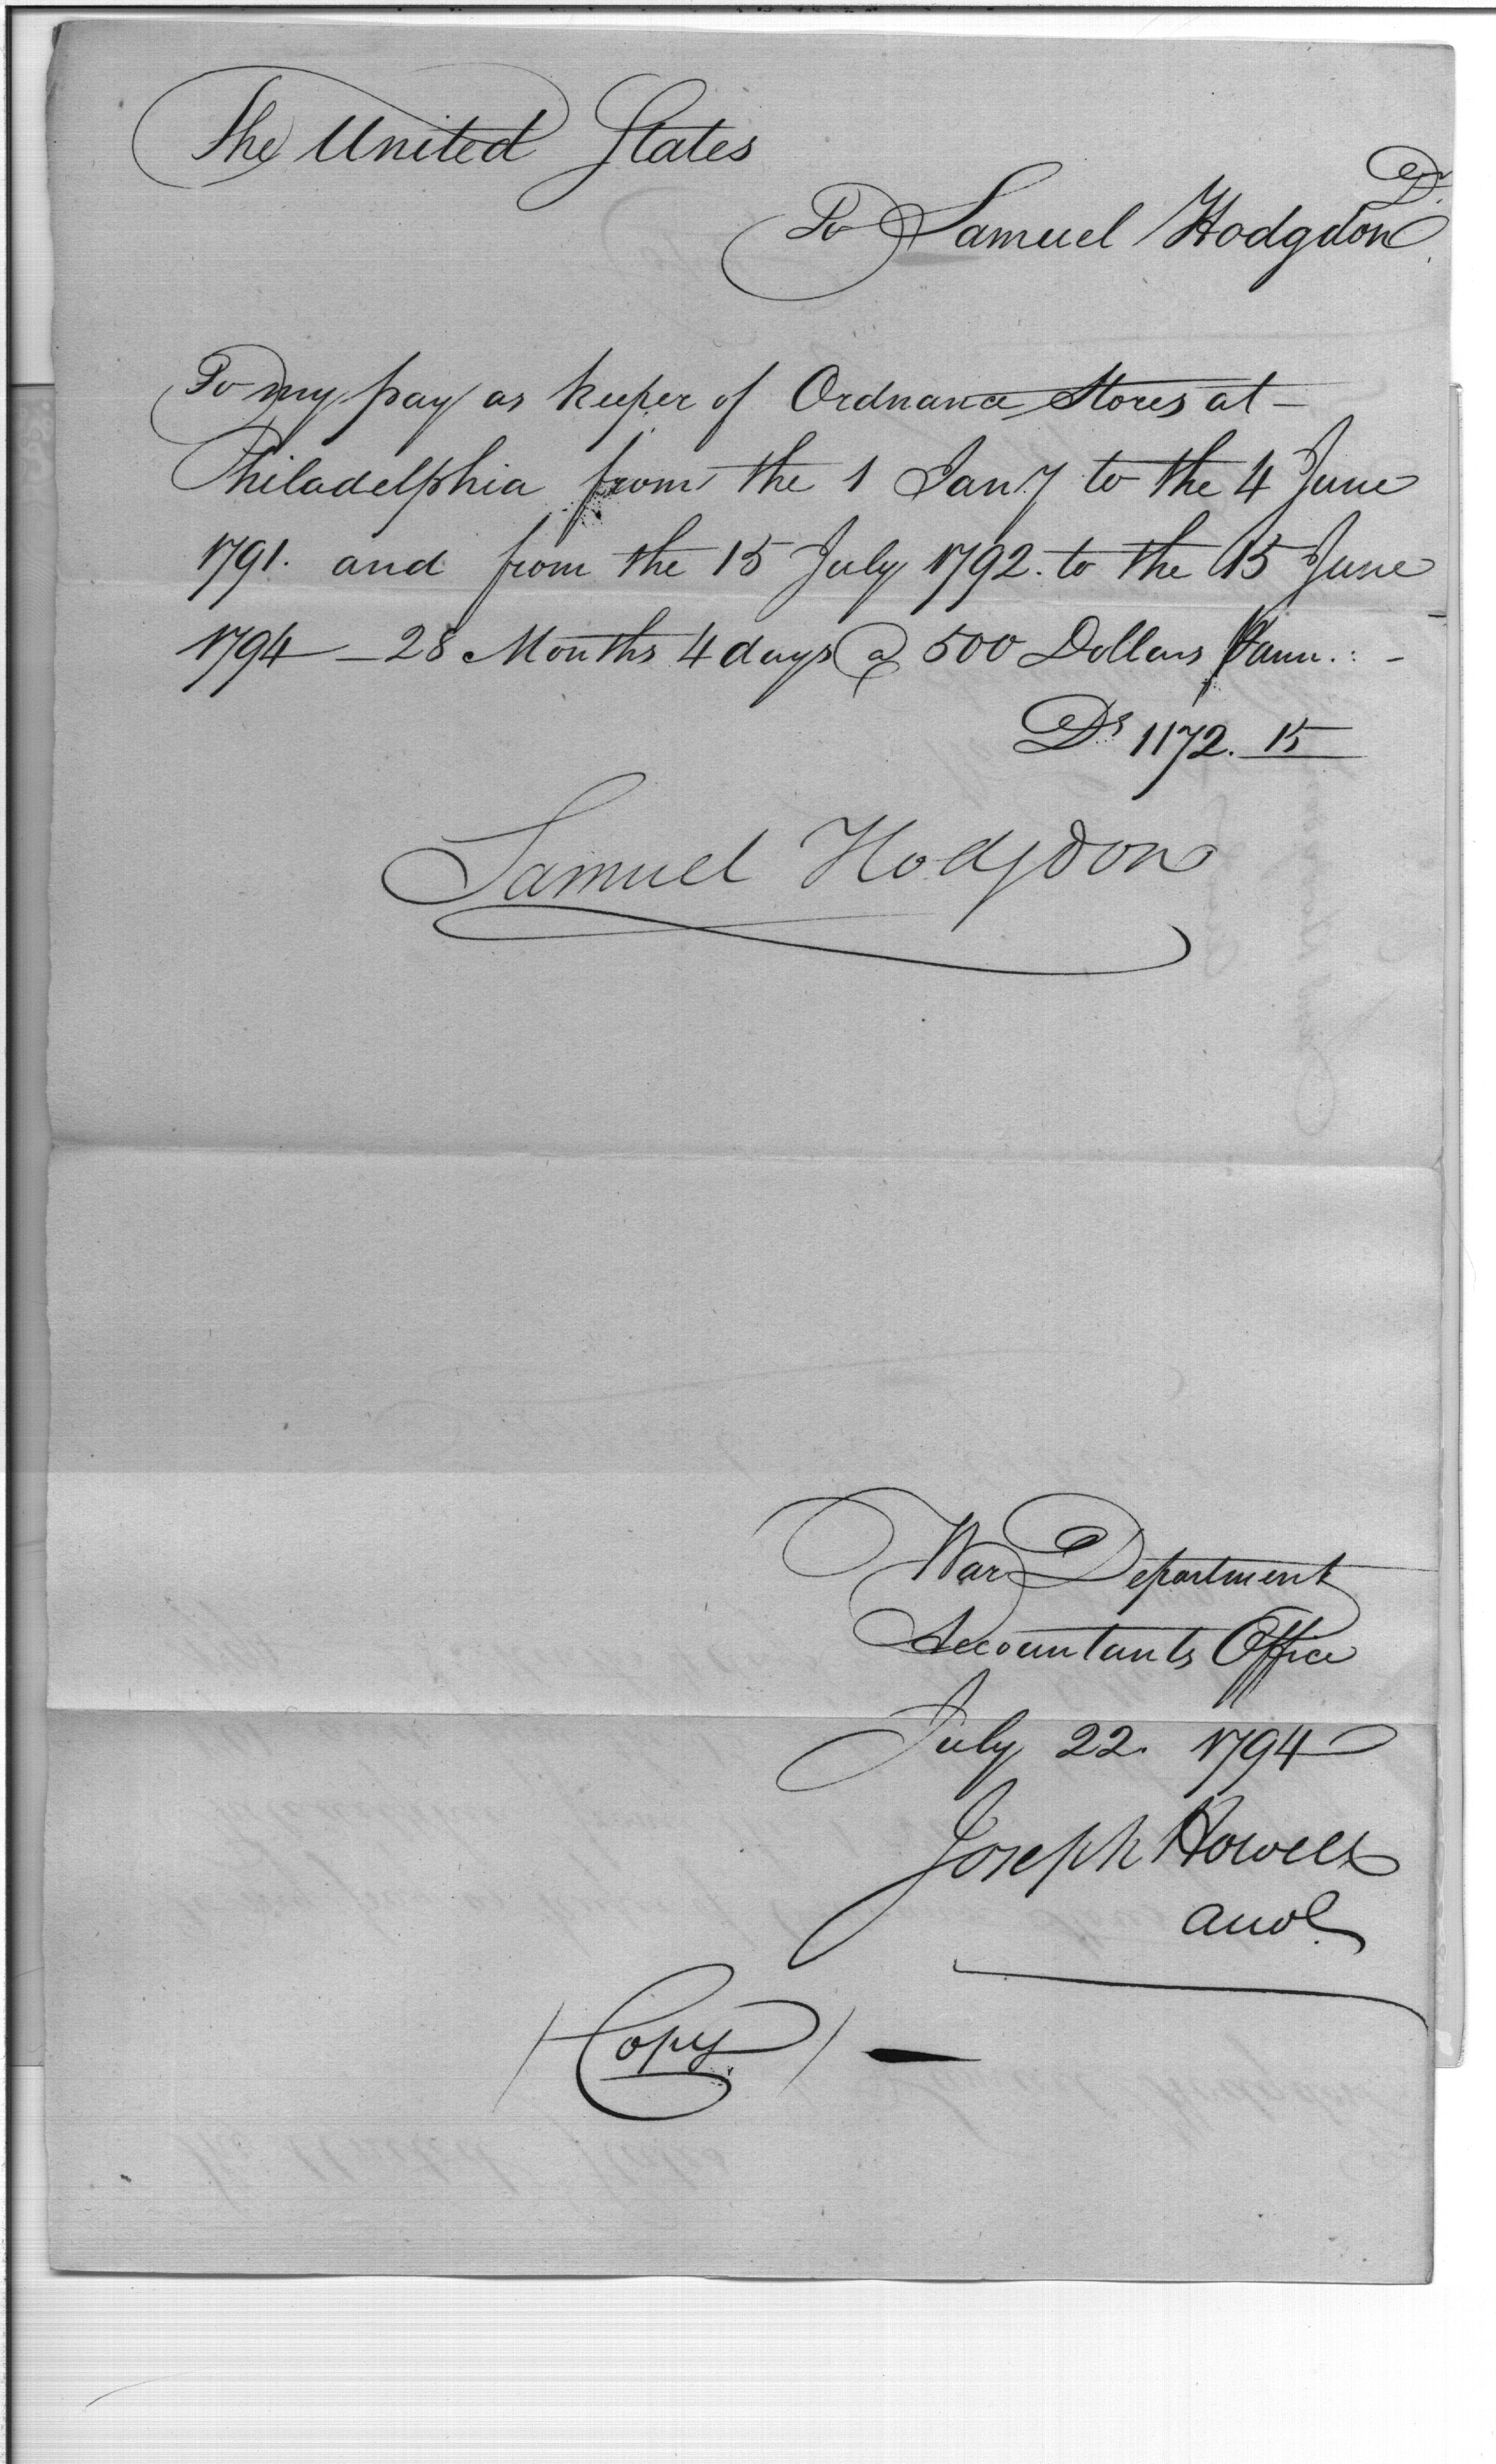 The United States
Dr.
To Samuel Hodgdon
To my pay as keeper of Ordnance Stores at —
Philadelphia from the 1 Jany to the 4 June
1791. and from the 15 July 1792. to the 15 June
1794 — 28 Months 4 days @ 500 Dollars ⅌ ann. : -
Ds 1172. 15
Samuel Hodgdon
War Department
Accountants Office
July 22. 1794
Joseph Howell
(Copy) —